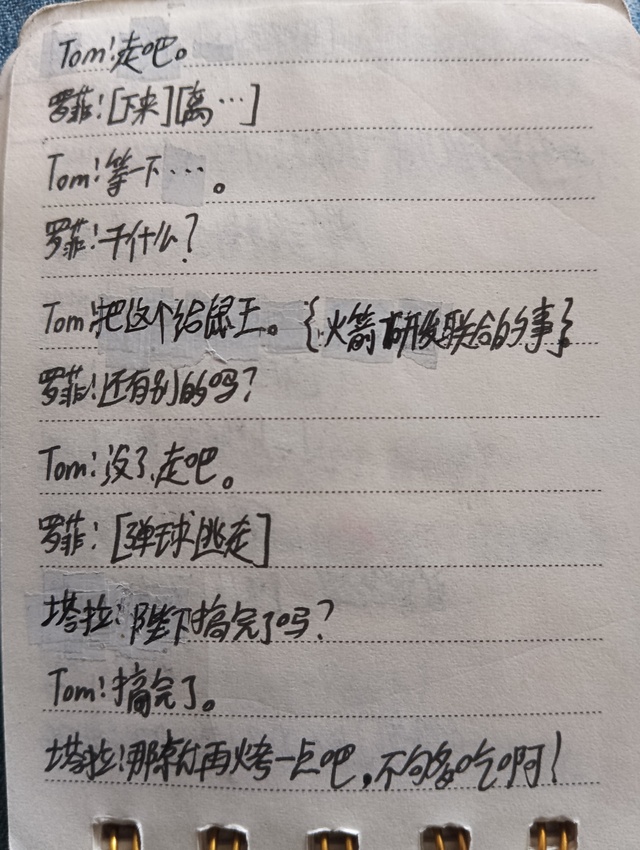 Tom:走吧。
罗菲:[下来][离…]
Tom:等一下…。
罗菲:干什么?
Tom:把这个给鼠王。{火箭研发联合的事}
罗菲:还有别的吗?
Tom:没了,走吧。
罗菲:[弹球逃走]
塔拉:陛下搞完了吗?
Tom:搞完了。
塔拉:那就再烤一点吧,不够多吃啊!